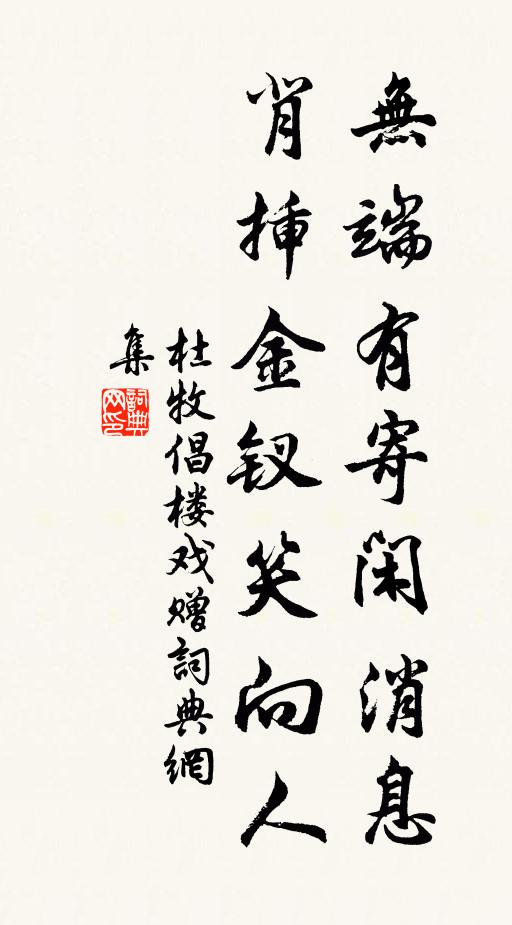 無端有寄闲消息
背挿金钗笑向人
杜牧倡楼戏赠詞典網
集
詞典
网印